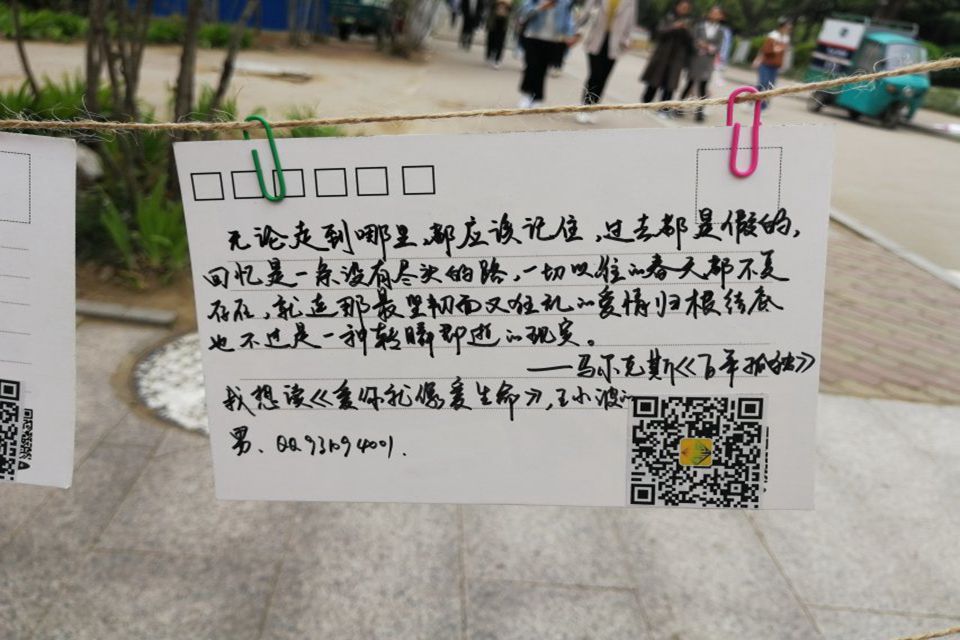 无论走到哪里,都应该记住,过去都是假的,
回忆是一条没有尽头的路,一切以往的春天都不复
存在,就连那最坚韧而又狂乱的爱情归根结底
也不过是一种转瞬即逝的现实。
——马尔克斯《百年孤独》
我想读《爱你就像爱生命》,王小波的
男、QQ931094001.